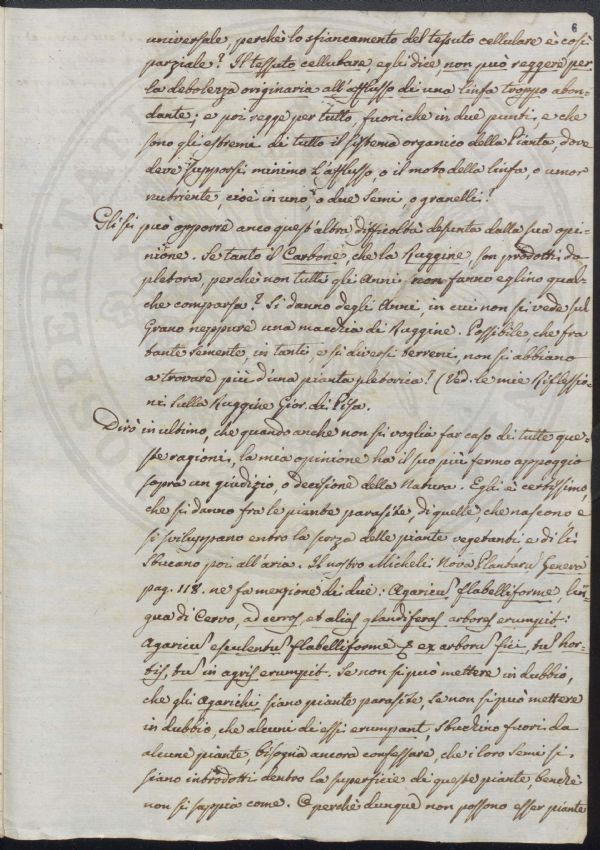 6
universale, perchè lo sfiancamento del tessuto cellulare è così
parziale? Il tessuto cellulare egli dice, non può reggere per
la debolezza originaria all'afflusso di una linfa troppo abon-
dante, e poi regge per tutto, fuori che in due punti, e che
sono gli estremi di tutto il sistema organico della Pianta, dove
deve supporsi minimo l'afflusso, o il moto della linfa, o umor
nutriente, cioè in uno, o due semi, o granelli!
Gli si può opporre anco quest'altra difficoltà desunta dalla sua opi-
nione. Se tanto il Carbone, che la Ruggine son prodotti da
pletora, perchè non tutti gli Anni, non fanno eglino qual-
che comparsa? Si danno degli Anni, in cui non si vede sul
Grano neppure una macchia di Ruggine. Possibile, che fra
tante semente, in tanti, e sì diversi terreni, non si abbiano
a trovare più d'una pianta pletorica! (Ved. le mie Riflessio-
ni sulla Ruggine Gior. di Pisa.
Dirò in ultimo, che quando anche non si voglia far caso di tutte que-
ste ragioni, la mia opinione ha il suo più fermo appoggio
sopra un giudizio, o decisione della Natura. Egli è certissimo,
che si danno fra le piante parasite, di quelle, che nascono e
si sviluppano entro la scorza delle piante vegetanti, e di lì
sbucano poi all'aria. Il nostro Micheli Nova Plantarũ Genera
pag. 118. ne fa menzione di due: Agaricus flabelliforme, lin-
gua di Cervo, ad cerros, et alias glandiferas arbores erumpit:
Agaricus esculentus flabelliforme & ex arboru fici, tu hor-
tis, tu in agris erumpit. Se non si può mettere in dubbio,
che gli Agarichi siano piante parasite, se non si può mettere
in dubbio, che alcuni di essi erumpant, sbuchino fuori da
alcune piante, bisogna ancora confessare, che i loro semi si
siano introdotti dentro la superficie di queste piante, benchè
non si sappia come. E perchè dunque non possono esser piante